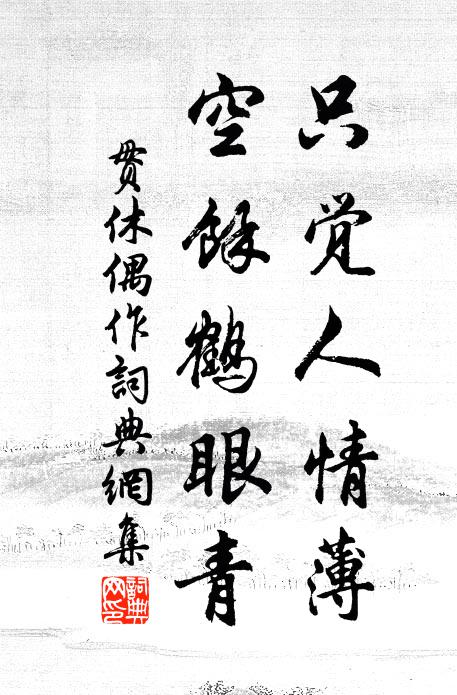 只觉人情薄
空馀鹤眼青
贯休偶作詞典網集
詞典网印